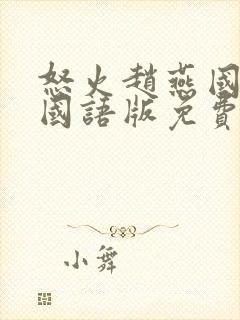 怒火趙燕國
國語版免費
小舞